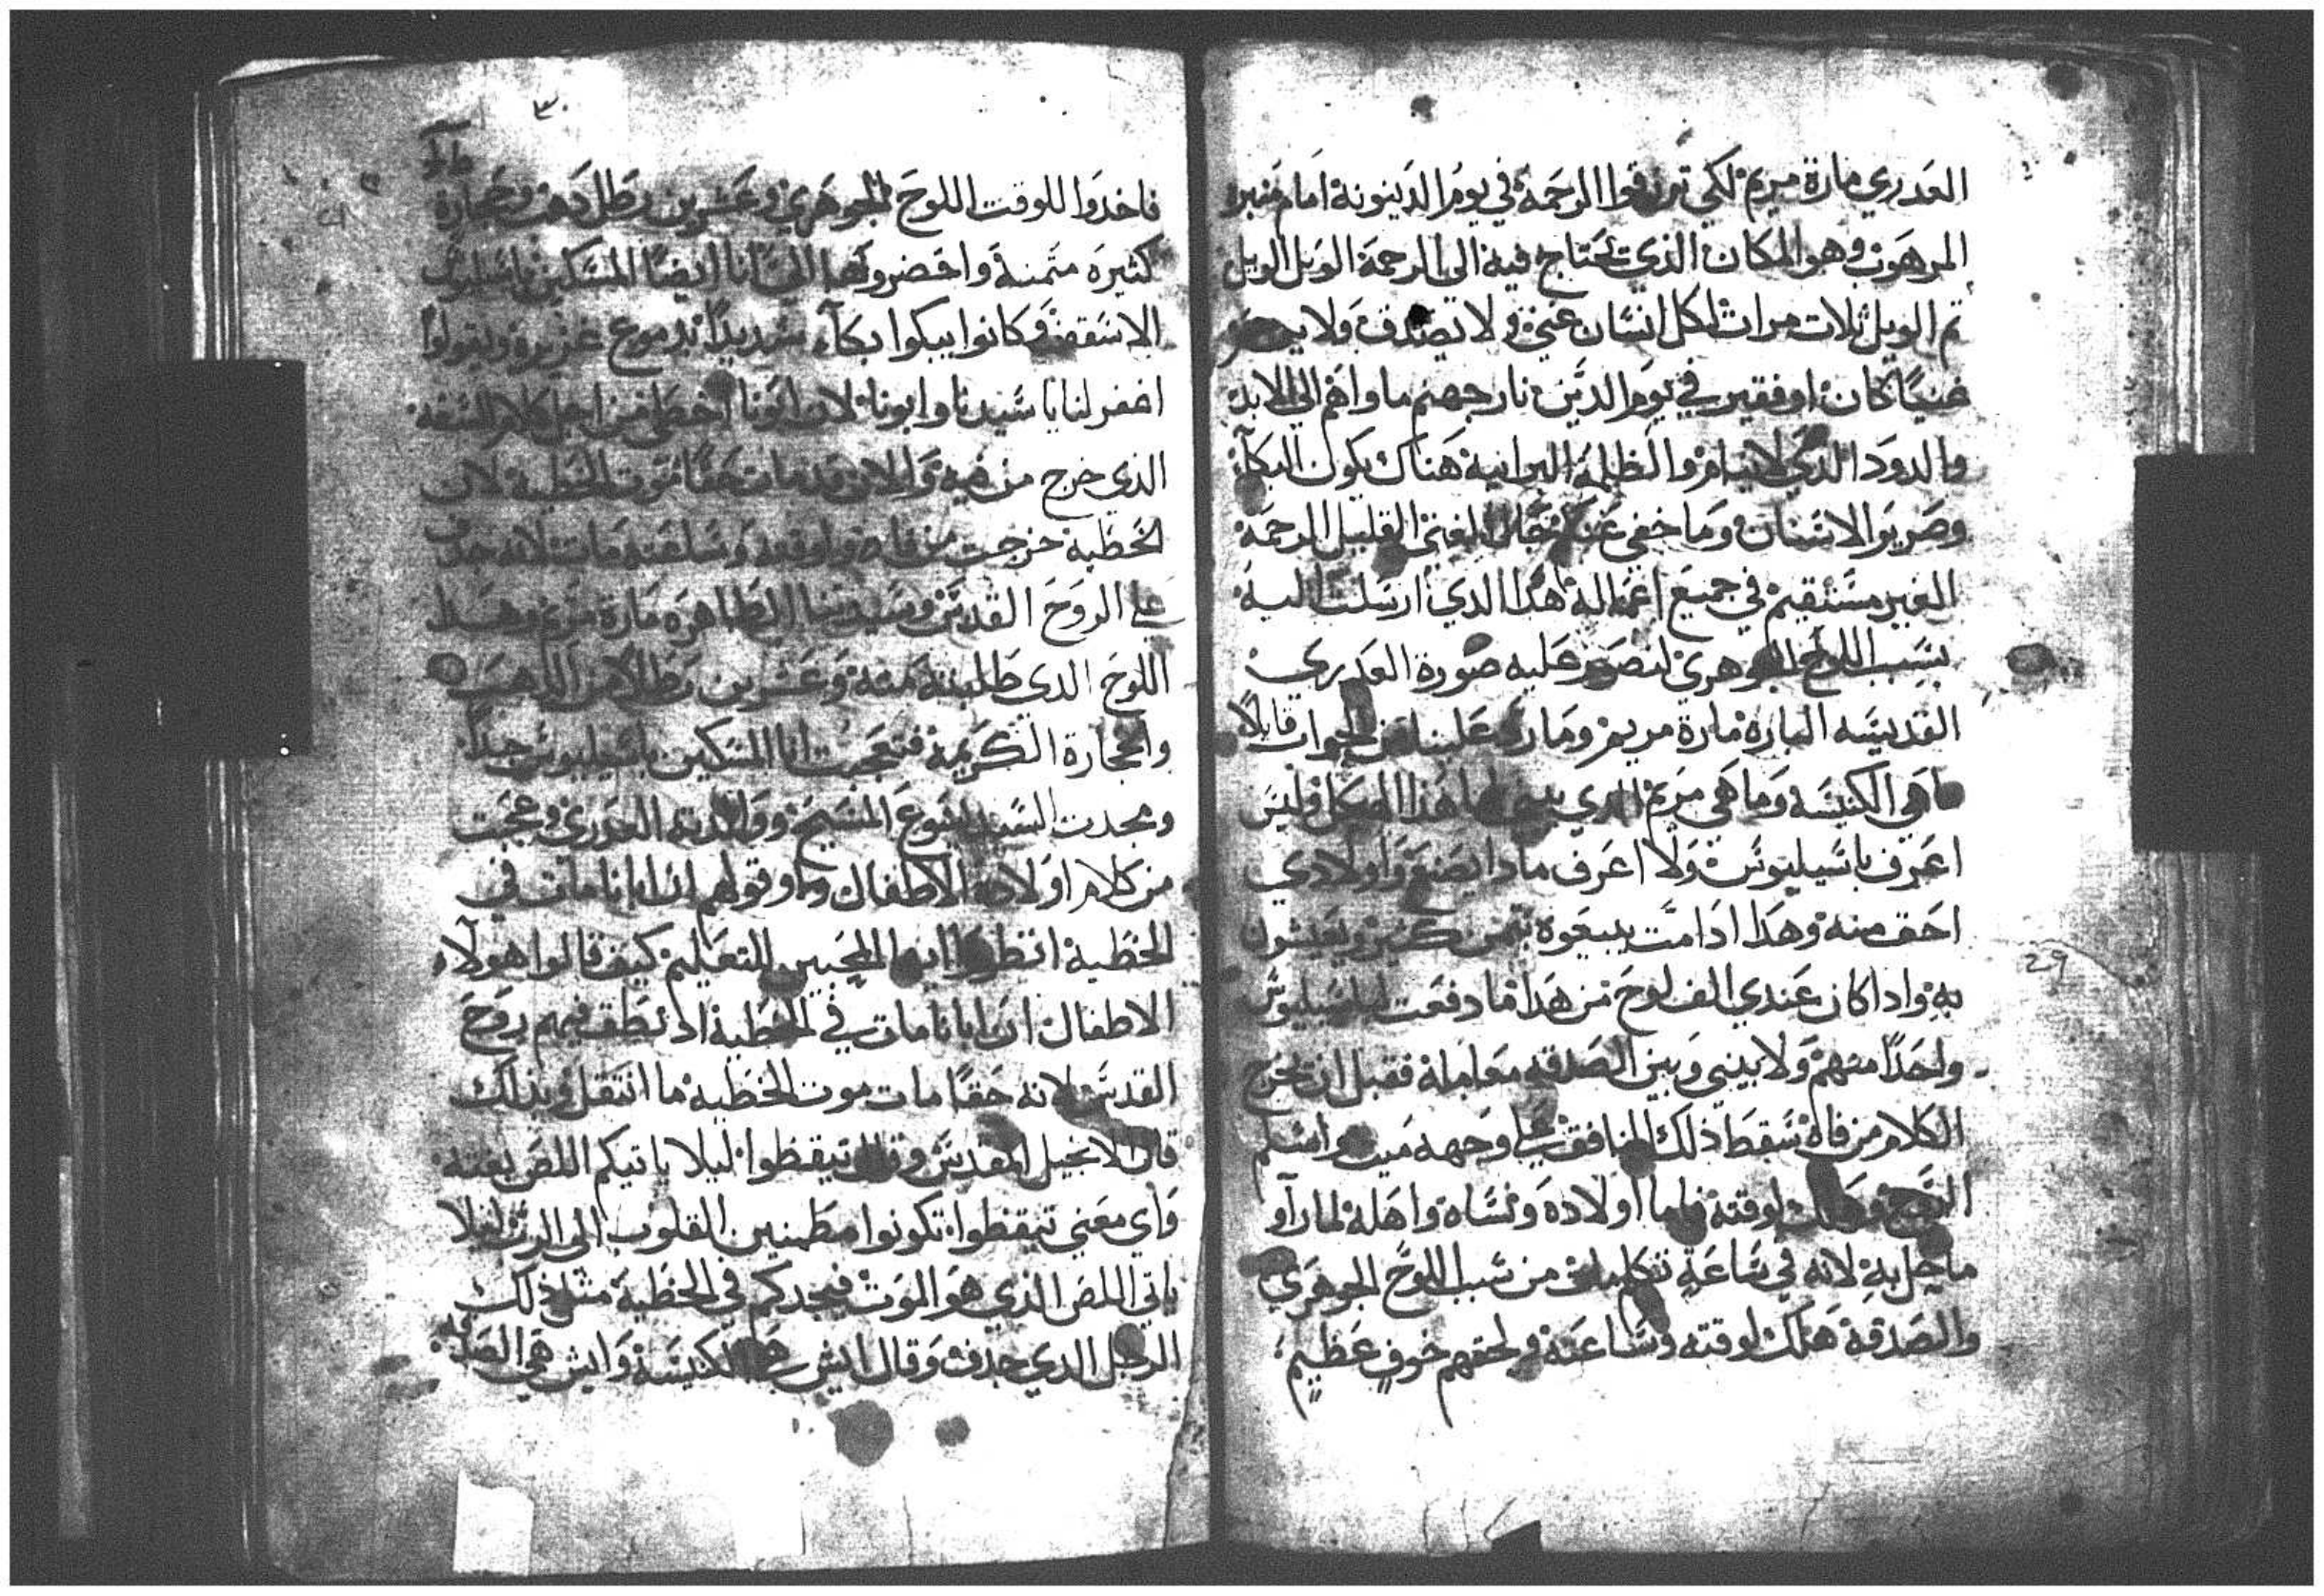 العدري مارة مريم لكي ترزقوا الرحمة في يوم الدينونة امام منبره
المرهوب وهو المكان الذي تحتاج فيه الى الرحمة الويل الويل
تم الويل تلات مرات لكل انسان غني ولا يصدق ولا
غنيًا كان او فقير في يوم الدين نار جهنم ماواهم الى الابد
والدود الذي لا ينام والظلمة البرانية هناك يكون البكآء
وصرير الاسنان وما خفي عن الغني القليل الرحمة
الغير مستقيم في جميع اعماله هذا الدي ارسلت اليه
بسبب اللوح الجوهري لنصور عليه صورة العدري
القديسه الباره مارة مريم وما رد علينا من الجواب قايلًا
ما هي الكنيسه وما هي مريم الدي هذا الهيكل وليس
اعرف باسيليوس ولا اعرف مادا يصنع واولادي
احق منه وهدا ادا مت يبيعوه بتمن كبير ويعيشون
به وادا كان عندي الف لوح من هدا ما دفعت لباسيليوس
واحدًا منهم ولا بيني وبين الصدقه معاملة فقبل ان تخرج
الكلام من فاه سقط ذلك المنافق على وجهه ميت واسلم
الروح وهلك لوقته فاما اولاده ونساه واهله لما رآو
ما حل به لانه في ساعة تكلم من سبب اللوح الجوهري
والصدقة هلك لوقته وساعته ولحقهم خوف عظيم
29
٣٠
فاخدوا للوقت اللوح الجوهري وعشرين رطل دهب وحجارة
كثيره متمنة واحضروهما الي انا ايضًا المسكين باسيليوس
الاسقف وكانوا يبكوا بكآء شديدًا بدموع غزيره ويقولوا
اغفر لنا يا سيدنا وابونا لان ابونا اخطى من اجل كلام السفه
الذي خرج من فيه والان قد مات حقًا موت الخطية لان
الخطية خرجت من فاه لوقته وساعته مات لانه جدف
على الروح القدس وسيدتنا الطاهره مارة مريم وهدا
اللوح الدى طلبته منه وعشرين رطلًا من الدهب
والحجارة الكريمة فتعجبت انا المسكين باسيليوس جدًا
ومجدت السيد يسوع المسيح ووالدته العدري وعجبت
من كلام اولاده الاطفال وقولهم ان ابانا مات في
الخطية انظروا ايها المحبين التعليم كيف قالوا هولآء
الاطفال ان ابانا مات في الخطية اد نطق فيهم روح
القدس لانه حقًا مات موت الخطيه ما انتقل وبذلك
قال الانجيل المقدس وقال تيقظوا ليلا ياتيكم اللص بغتة
واي معني تيقظوا تكونوا مطمنين القلوب الى الرب ليلا
ياتي اللص الذي هو الموت فيجدكم في الخطية مثل ذلك
الرجل الدي جدف وقال ايش هي الكنيسة وايش هي الصدقه